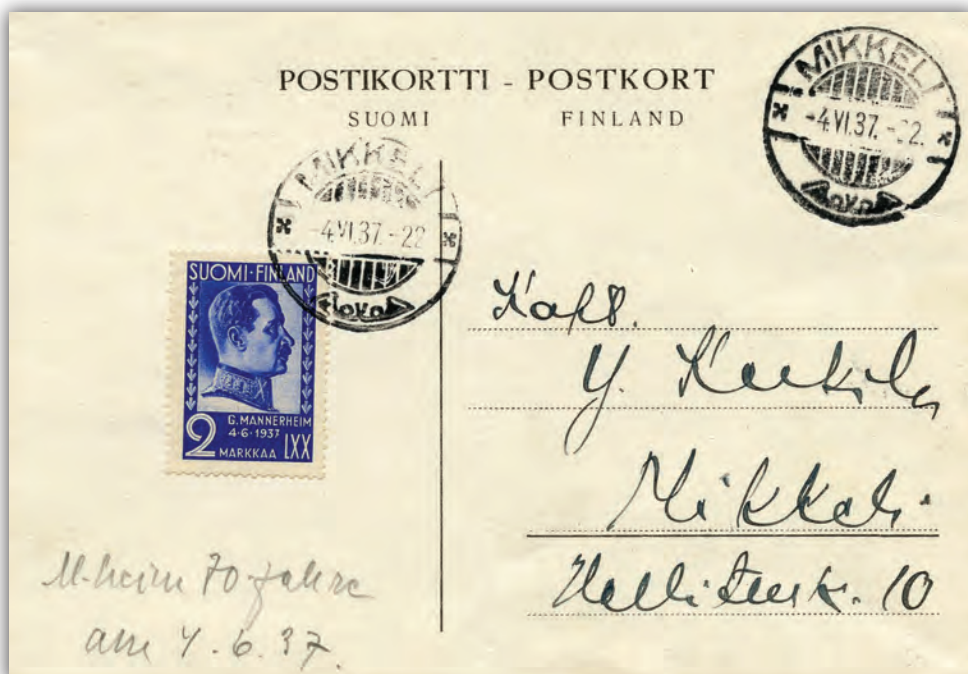 POSTIKORTTI - POSTKORT
SUOMI FINLAND
MIKKELI
-4.VI.37.-22.
MIKKELI
-4.VI.37.-22
SUOMI·FINLAND
G. MANNERHEIM
4·6·1937
2 MARKKAA LXX
Y.
Mikkeli
10
M.heim 70 Jahre
am 4.6.37.